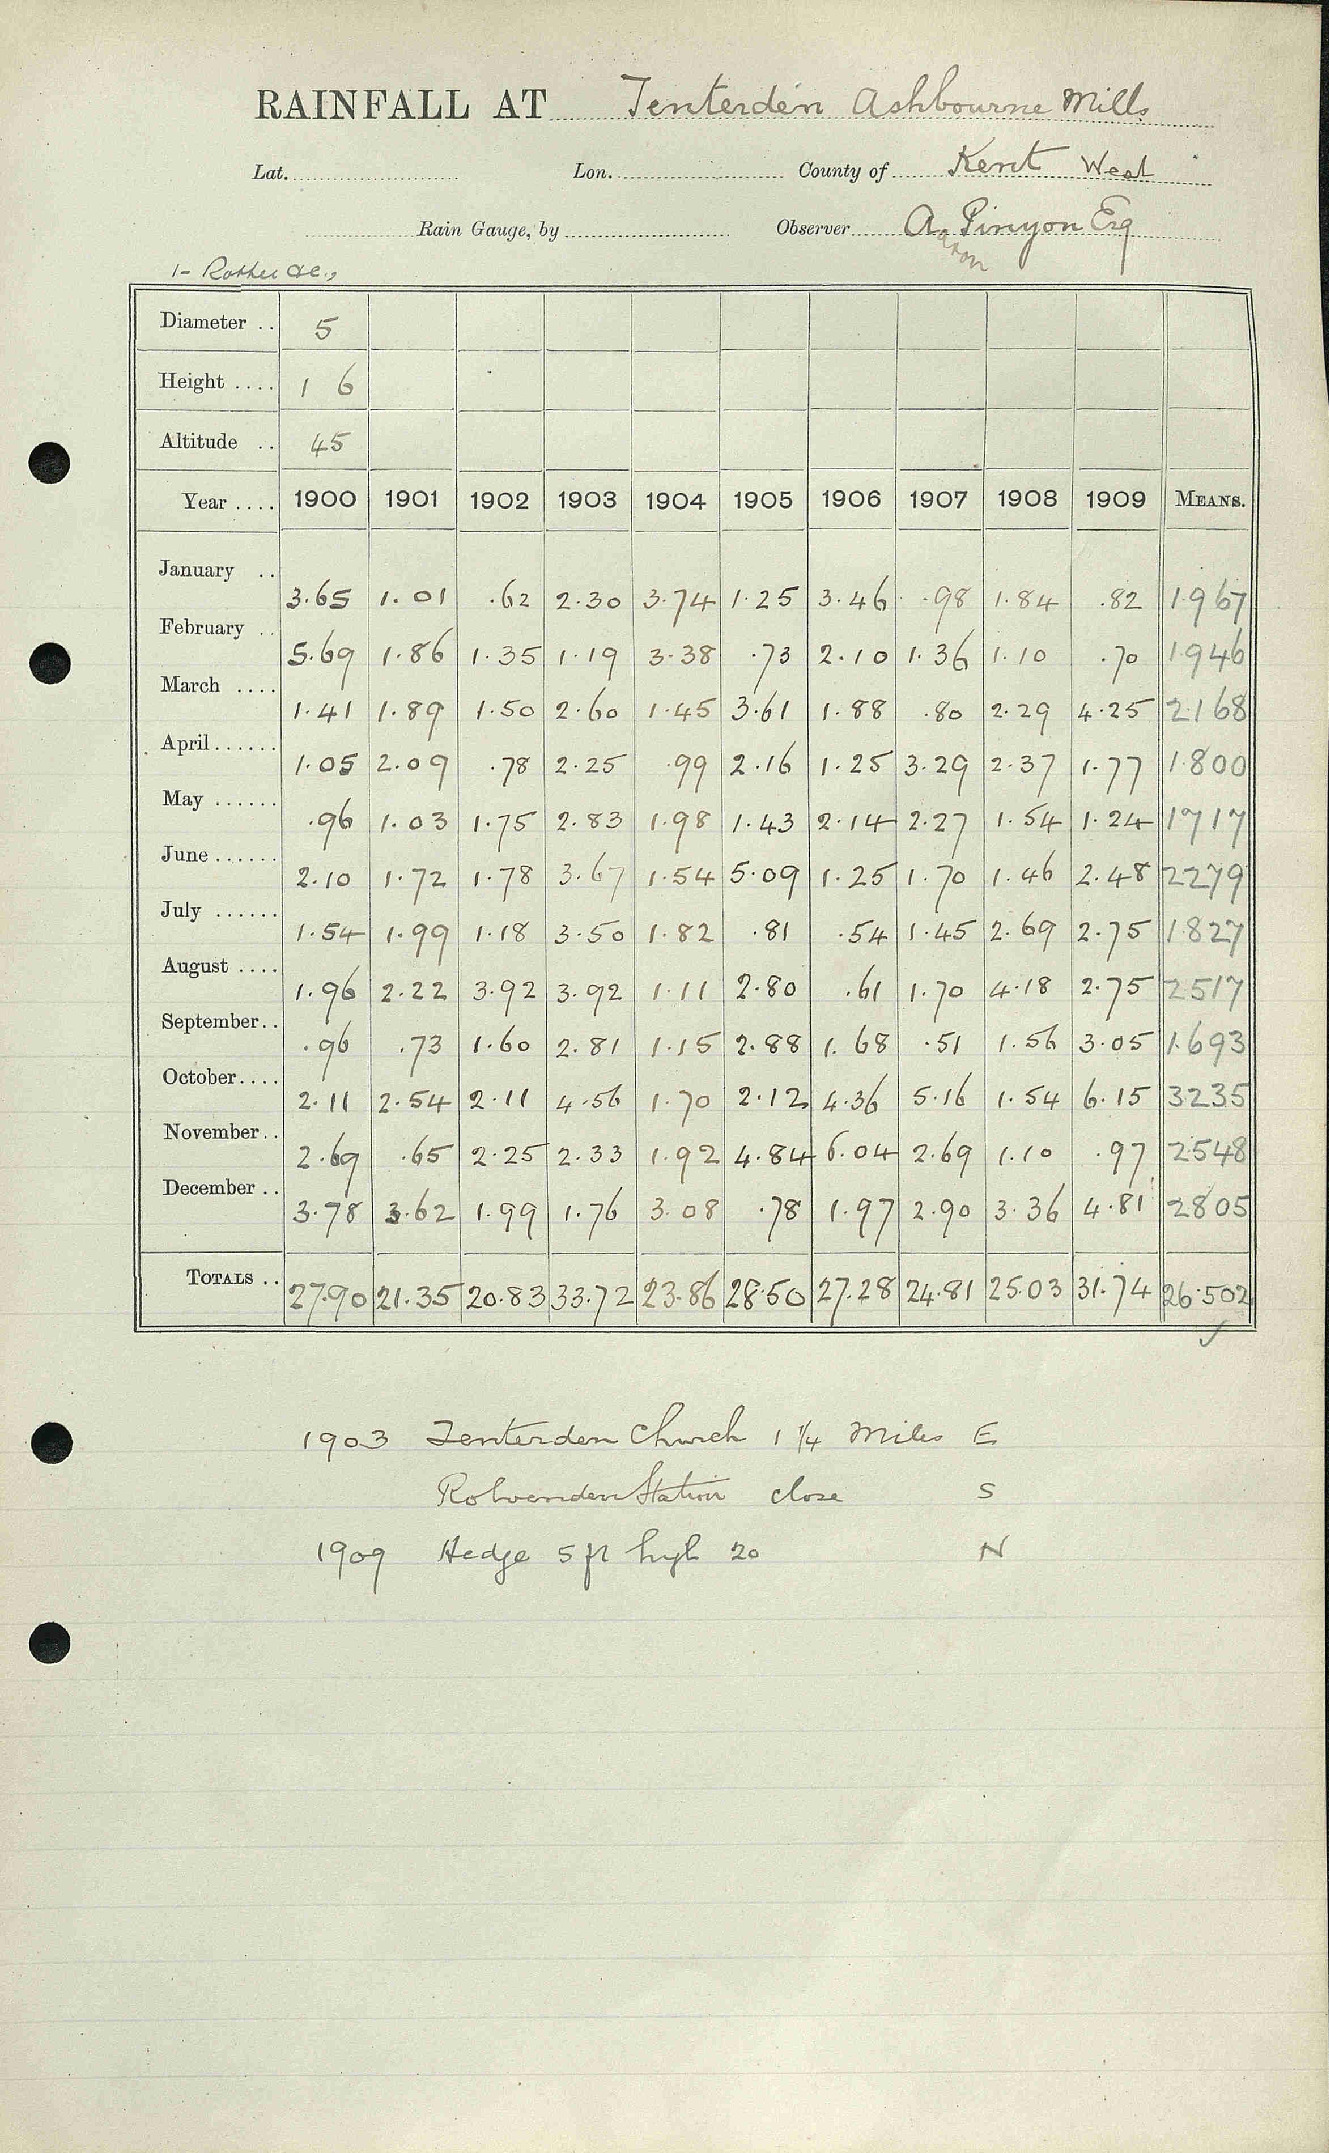 RAINFALL AT Tenterden Ashbourne Mills
Lat. Lon. County of Kent West
Rain Gauge, by Observer A. Pinyon Esq
aron
1- Rother &c.,
Diameter .. 5
Height .... 1 6
Altitude .. 45
Year .... 1900 1901 1902 1903 1904 1905 1906 1907 1908 1909 MEANS.
January .. 3.65 1.01 .62 2.30 3.74 1.25 3.46 .98 1.84 .82 1.967
February .. 5.69 1.86 1.35 1.19 3.38 .73 2.10 1.36 1.10 .70 1.946
March .... 1.41 1.89 1.50 2.60 1.45 3.61 1.88 .80 2.29 4.25 2.168
April...... 1.05 2.09 .78 2.25 .99 2.16 1.25 3.29 2.37 1.77 1.800
May ...... .96 1.03 1.75 2.83 1.98 1.43 2.14 2.27 1.54 1.24 1717
June...... 2.10 1.72 1.78 3.67 1.54 5.09 1.25 1.70 1.46 2.48 2279
July ...... 1.54 1.99 1.18 3.50 1.82 .81 .54 1.45 2.69 2.75 1.827
August .... 1.96 2.22 3.92 3.92 1.11 2.80 .61 1.70 4.18 2.75 2517
September.. .96 .73 1.60 2.81 1.15 2.88 1.68 .51 1.56 3.05 1.693
October.... 2.11 2.54 2.11 4.56 1.70 2.12 4.36 5.16 1.54 6.15 3.235
November.. 2.69 .65 2.25 2.33 1.92 4.84 6.04 2.69 1.10 .97 2.548
December .. 3.78 3.62 1.99 1.76 3.08 .78 1.97 2.90 3.36 4.81 2805
TOTALS .. 27.90 21.35 20.83 33.72 23.86 28.50 27.28 24.81 25.03 31.74 26.502
1903 Tenterden Church 1 1/4 Miles E
Rolvenden Station close S
1909 Hedge 5 ft high 20 N